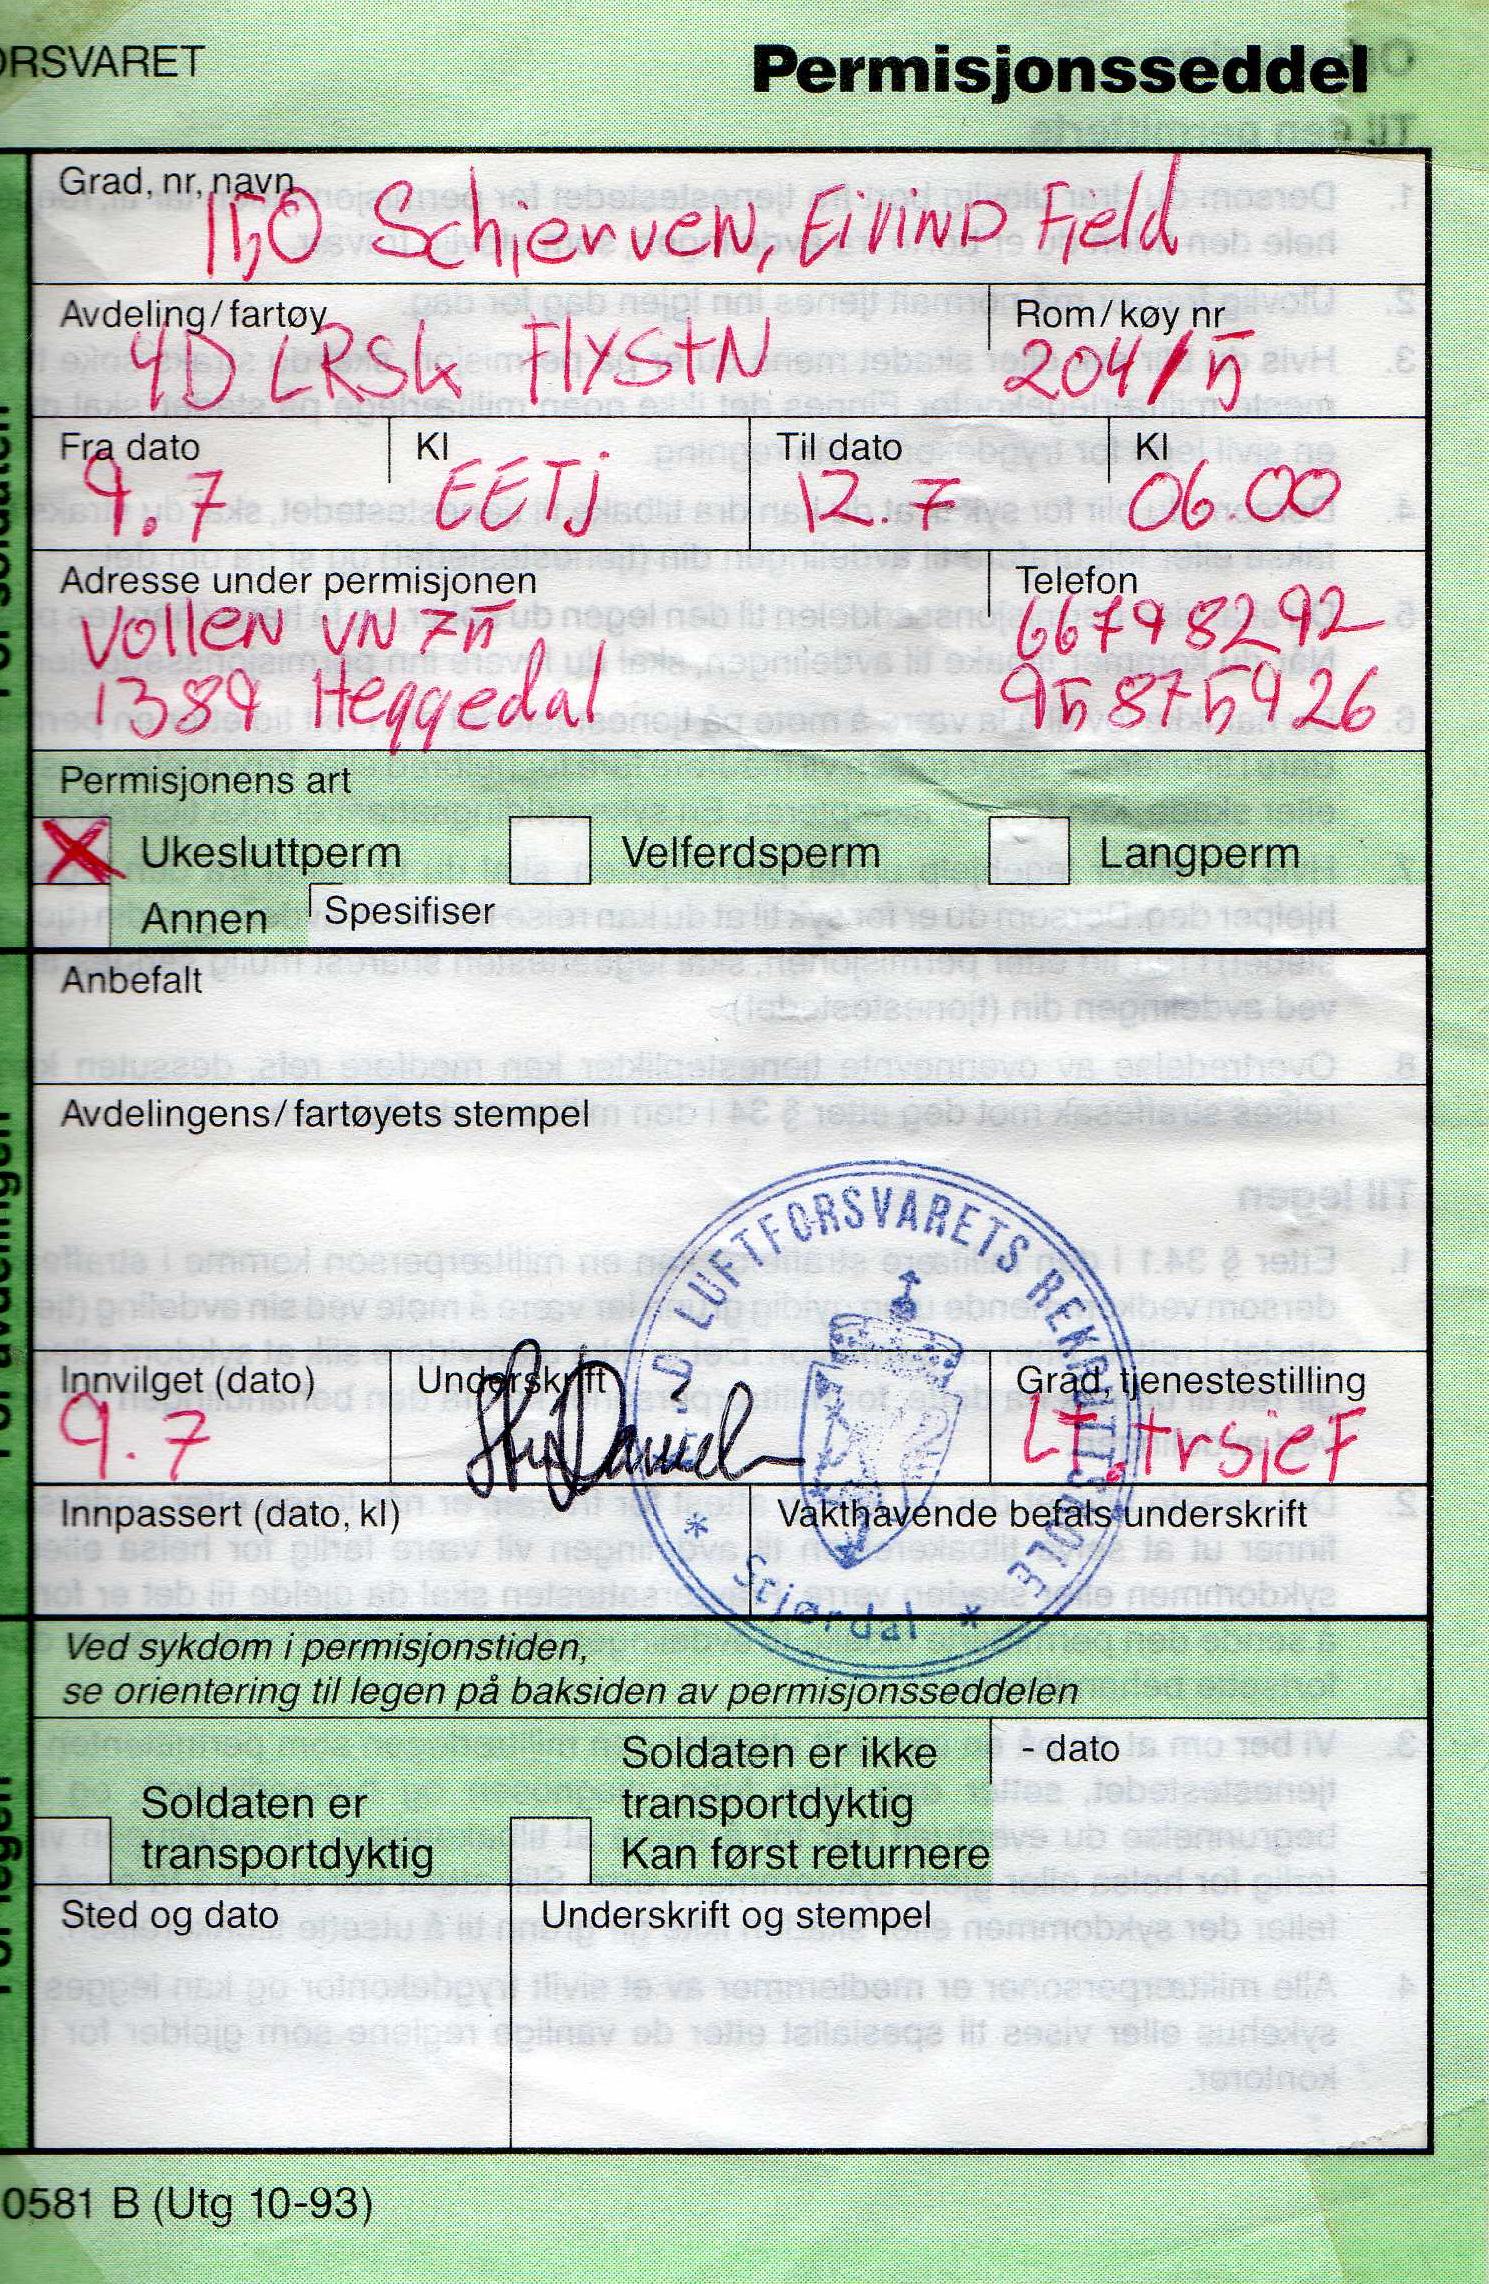 ORSVARET
Permisjonsseddel
Grad, nr, navn
150 Schjerven, Eivind Fjeld
Avdeling/fartøy
4D LRSK FlystN
Rom/køy nr
204/5
Fra dato
9.7
Kl
EETj
Til dato
12.7
Kl
06.00
Adresse under permisjonen
Vollen VN 75
1389 Heggedal
Telefon
66798292
95875926
Permisjonens art
Ukesluttperm
Velferdsperm
Langperm
Annen
Spesifiser
Anbefalt
Avdelingens/fartøyets stempel
LUFTFORSVARETS REKRUTTSKOLE
* Stjørdal *
Innvilget (dato)
9.7
Underskrift
Grad, tjenestestilling
LT. trsjef
Innpassert (dato, kl)
Vakthavende befals underskrift
Ved sykdom i permisjonstiden,
se orientering til legen på baksiden av permisjonsseddelen
Soldaten er
transportdyktig
Soldaten er ikke
transportdyktig
Kan først returnere
- dato
Sted og dato
Underskrift og stempel
0581 B (Utg 10-93)